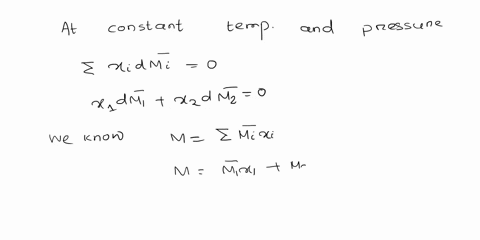 At constant temp. and pressure
Σ xᵢ dM̄ᵢ = 0
x₁dM̄₁ + x₂dM̄₂ = 0
we know M = Σ M̄ᵢxᵢ
M = M̄₁x₁ +